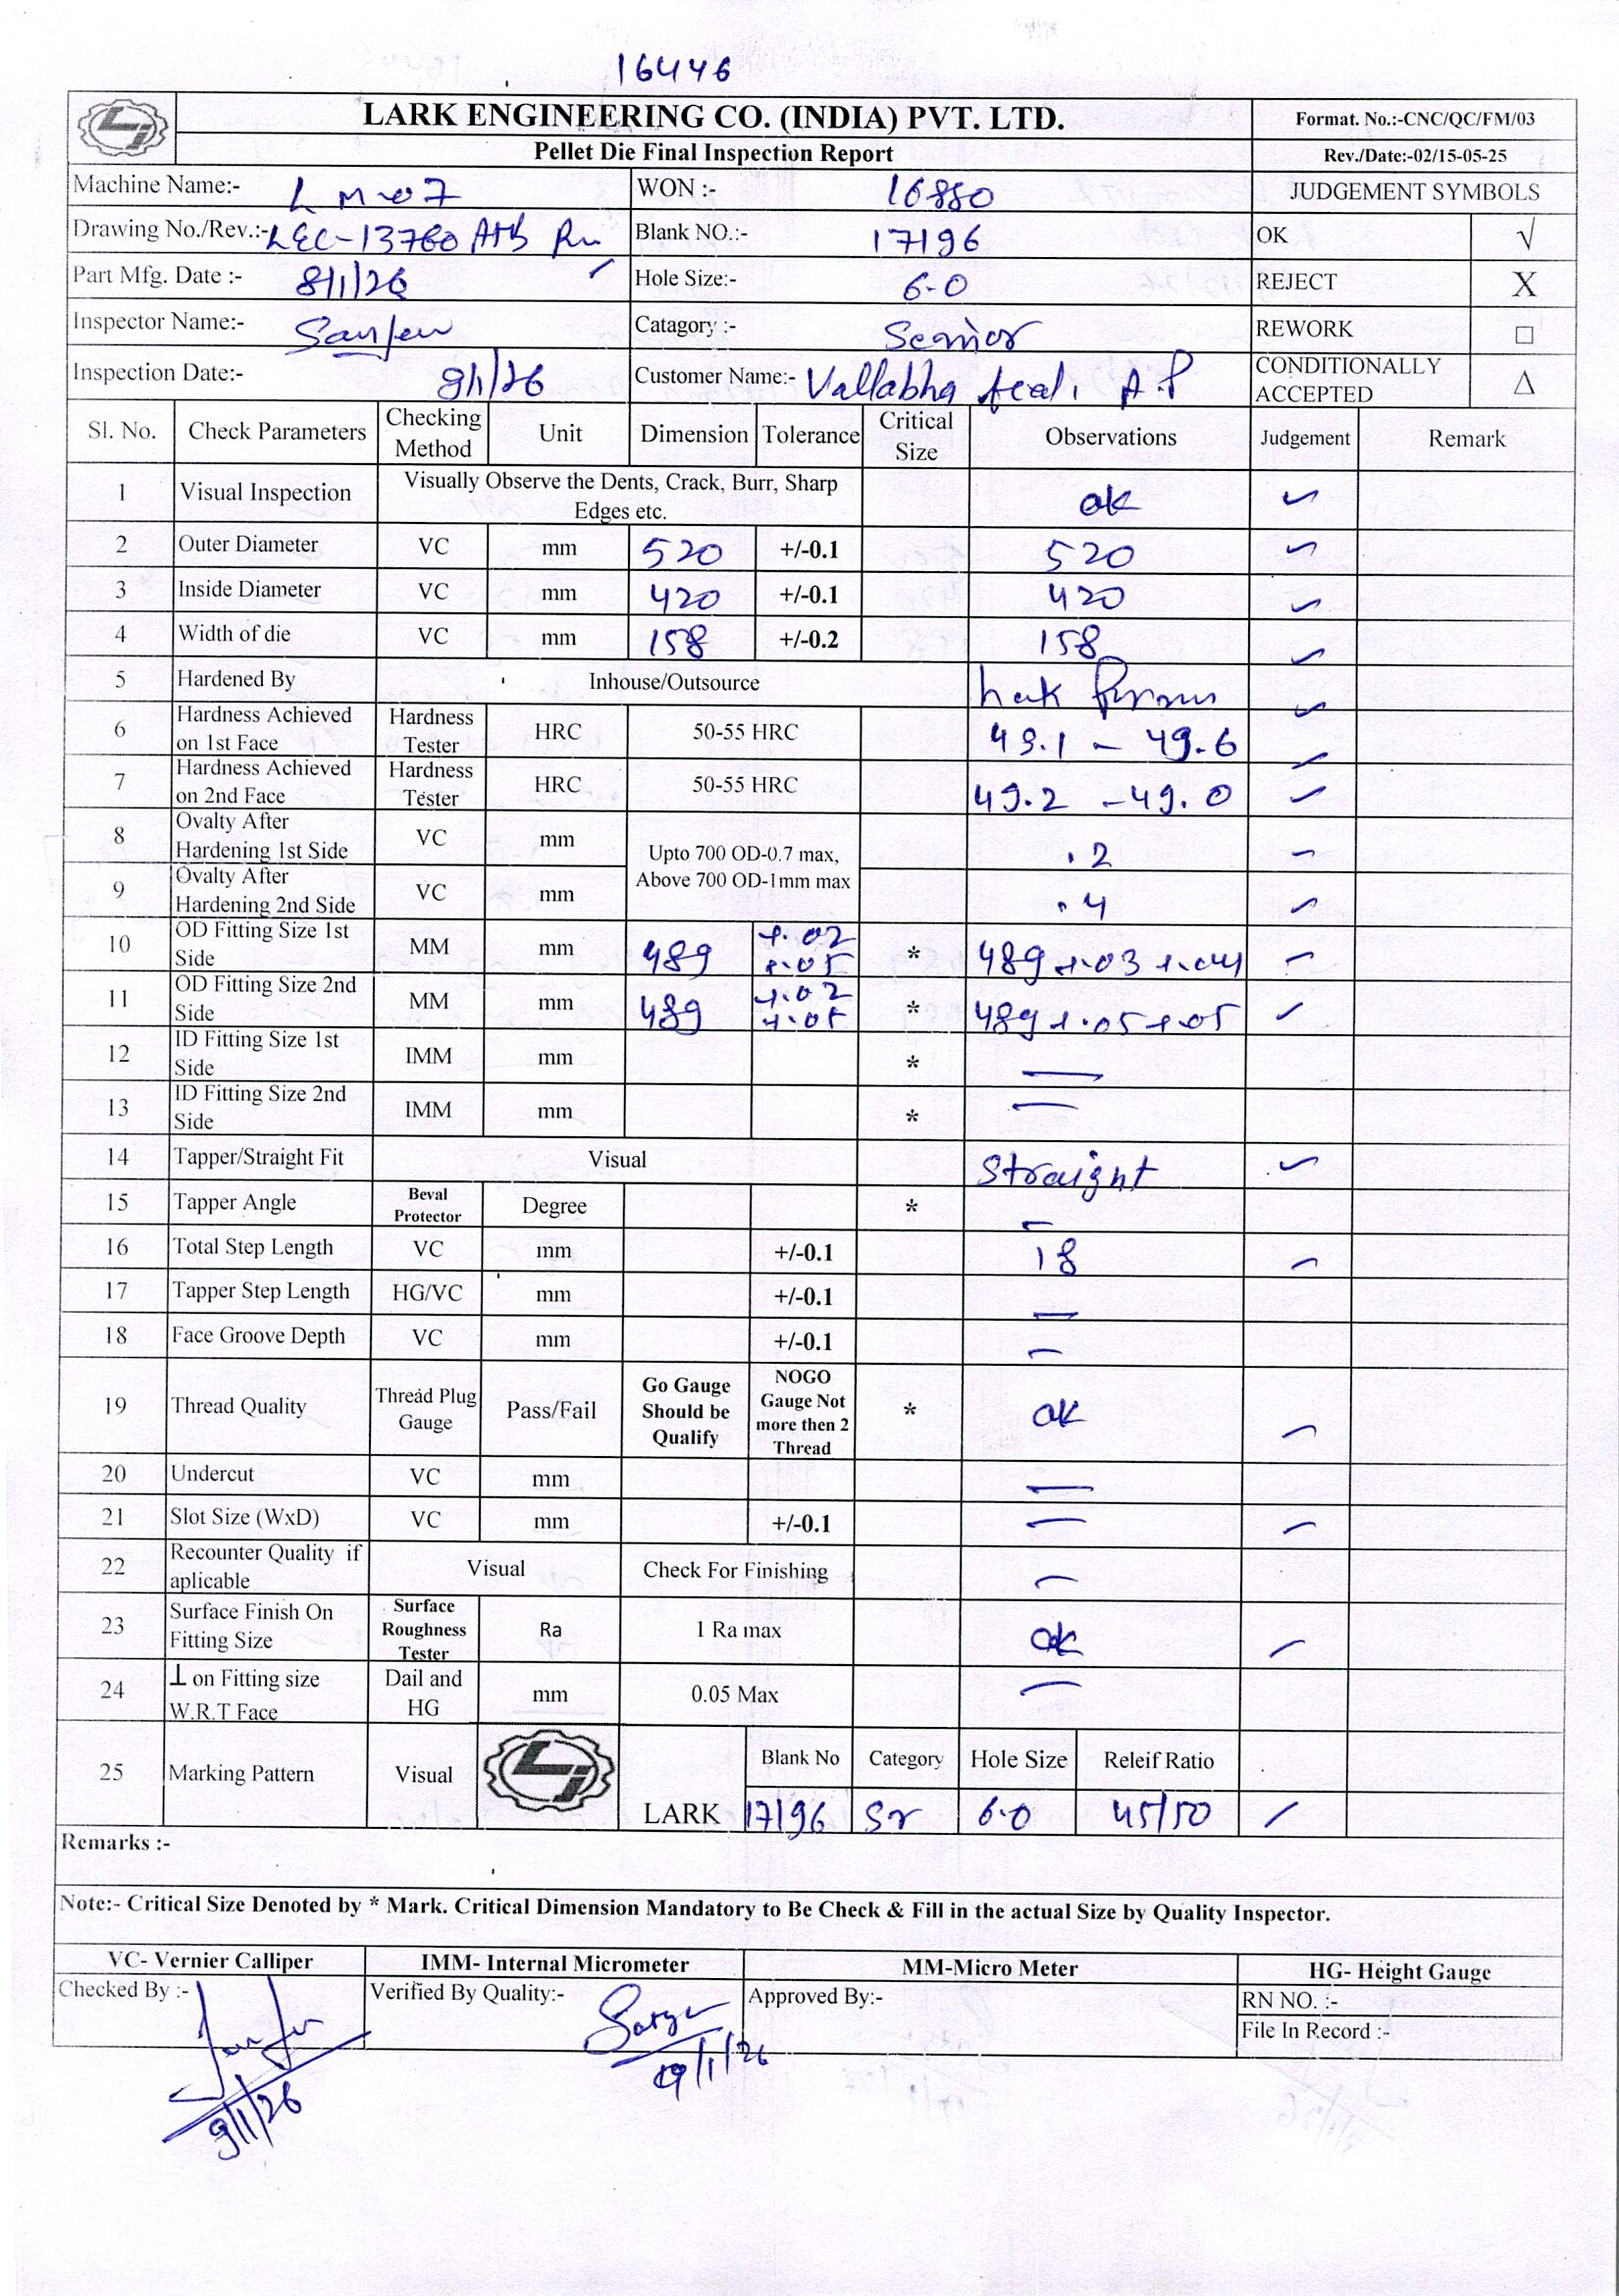 16446
LARK ENGINEERING CO. (INDIA) PVT. LTD.
Format. No.:-CNC/QC/FM/03
Pellet Die Final Inspection Report
Rev./Date:-02/15-05-25
Machine Name:- LM-07 WON :- 16880 JUDGEMENT SYMBOLS
Drawing No./Rev.:- LEC-13760 Blank NO.:- 17196 OK √
Part Mfg. Date :- 8/1/26 Hole Size:- 6.0 REJECT X
Inspector Name:- Catagory :- Senior REWORK □
Inspection Date:- 9/1/26 Customer Name:- Vallabha A.P CONDITIONALLY ACCEPTED △
Sl. No. Check Parameters Checking Method Unit Dimension Tolerance Critical Size Observations Judgement Remark
1 Visual Inspection Visually Observe the Dents, Crack, Burr, Sharp Edges etc. ok ✓
2 Outer Diameter VC mm 520 +/-0.1 520 ✓
3 Inside Diameter VC mm 420 +/-0.1 420 ✓
4 Width of die VC mm 158 +/-0.2 158 ✓
5 Hardened By Inhouse/Outsource ✓
6 Hardness Achieved on 1st Face Hardness Tester HRC 50-55 HRC 49.1 - 49.6 ✓
7 Hardness Achieved on 2nd Face Hardness Tester HRC 50-55 HRC 49.2 - 49.0 ✓
8 Ovalty After Hardening 1st Side VC mm Upto 700 OD-0.7 max, Above 700 OD-1mm max .2 ✓
9 Ovalty After Hardening 2nd Side VC mm .4 ✓
10 OD Fitting Size 1st Side MM mm 489 +.02 +.05 * 489 +.03 +.04 ✓
11 OD Fitting Size 2nd Side MM mm 489 +.02 +.05 * 489 +.05 +.05 ✓
12 ID Fitting Size 1st Side IMM mm * —
13 ID Fitting Size 2nd Side IMM mm * —
14 Tapper/Straight Fit Visual Straight ✓
15 Tapper Angle Beval Protector Degree * —
16 Total Step Length VC mm +/-0.1 18 ✓
17 Tapper Step Length HG/VC mm +/-0.1 —
18 Face Groove Depth VC mm +/-0.1 —
19 Thread Quality Thread Plug Gauge Pass/Fail Go Gauge Should be Qualify NOGO Gauge Not more then 2 Thread * ok ✓
20 Undercut VC mm —
21 Slot Size (WxD) VC mm +/-0.1 — ✓
22 Recounter Quality if aplicable Visual Check For Finishing —
23 Surface Finish On Fitting Size Surface Roughness Tester Ra 1 Ra max ok ✓
24 ⊥ on Fitting size W.R.T Face Dail and HG mm 0.05 Max —
25 Marking Pattern Visual LARK Blank No Category Hole Size Releif Ratio
17196 Sr 6.0 45/50 ✓
Remarks :-
Note:- Critical Size Denoted by * Mark. Critical Dimension Mandatory to Be Check & Fill in the actual Size by Quality Inspector.
VC- Vernier Calliper IMM- Internal Micrometer MM-Micro Meter HG- Height Gauge
Checked By :- Verified By Quality:- Approved By:- RN NO. :-
File In Record :-
9/1/26 9/1/26